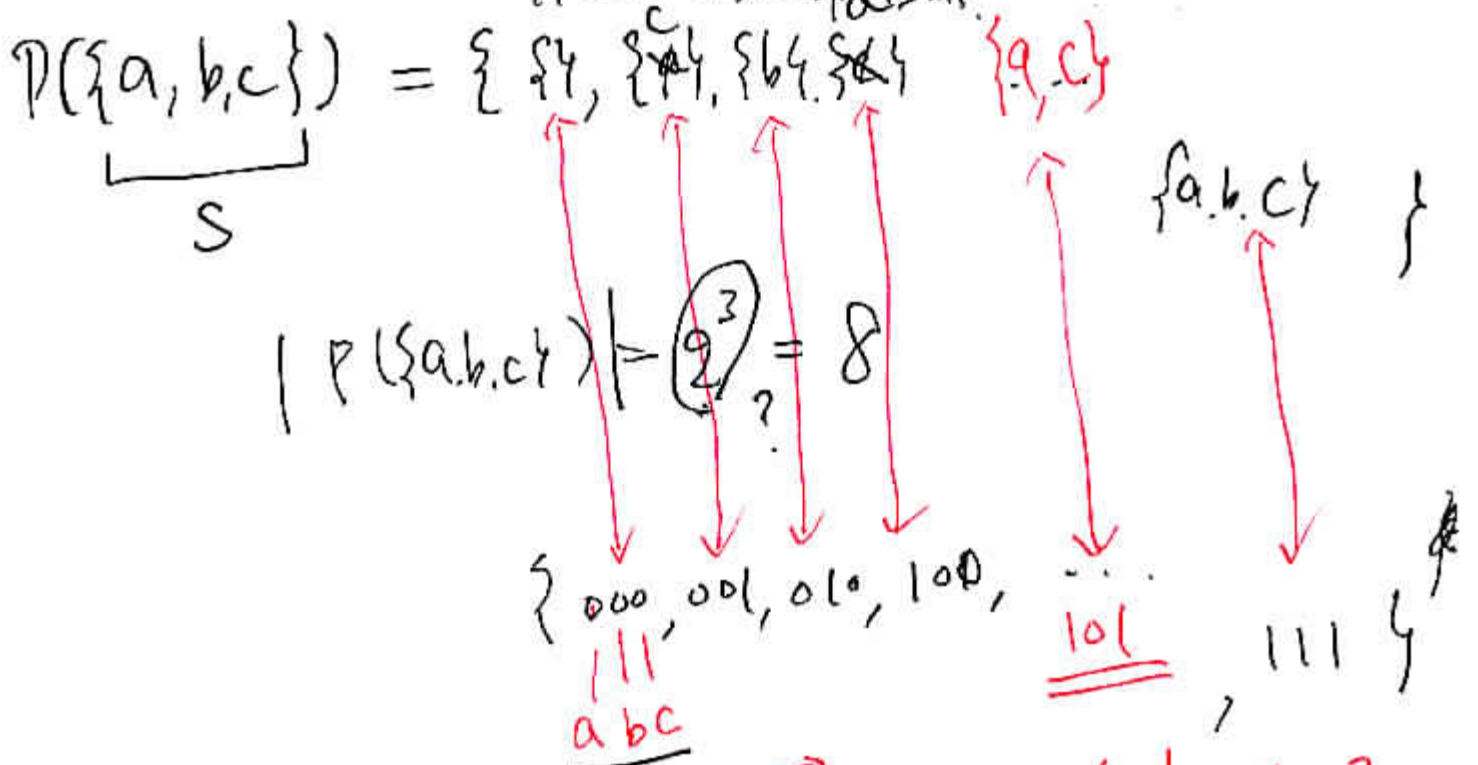 P({a, b, c}) = { {}, {c}, {b}, {a} {a, c}
S
{a, b, c} }
| P({a, b, c}) | = 2³ = 8
?
{ 000, 001, 010, 100, ...
101 , 111 }
a b c